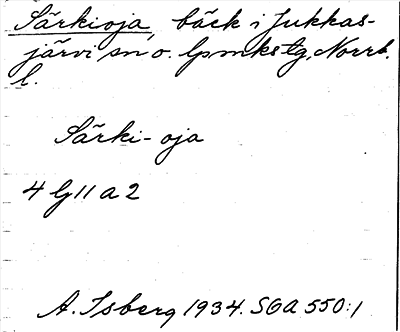 Särkioja, bäck i Jukkas-
järvi sn o. lpmkstg, Norrb.
l.
Särki-oja
4 G 11 a 2
A. Isberg 1934. SOA 550:1